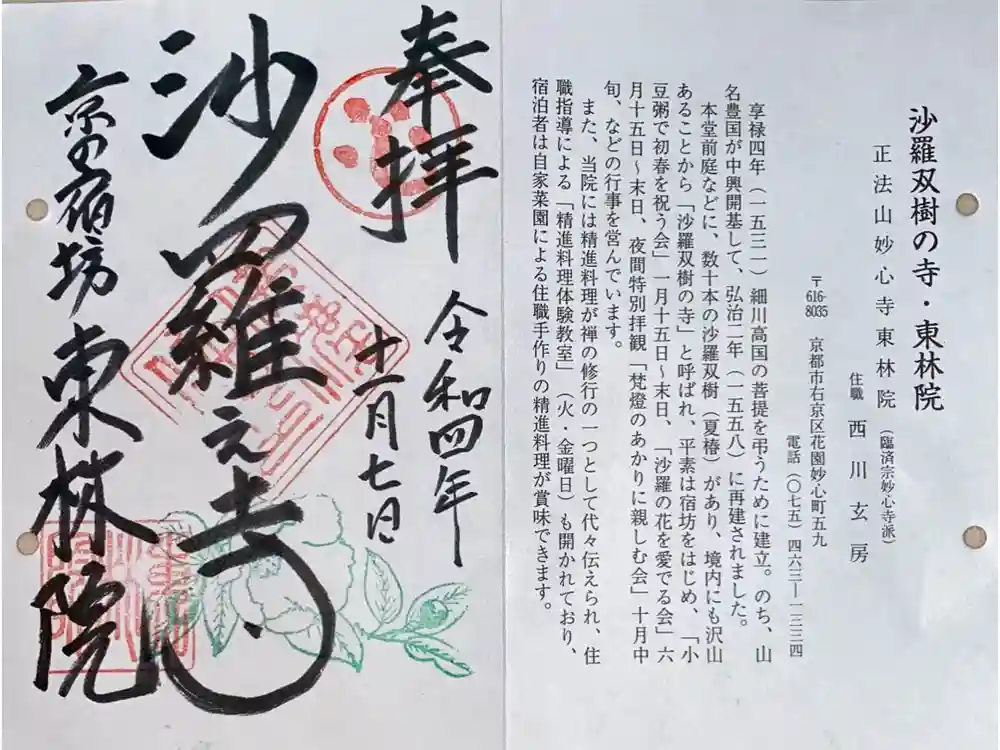 沙羅双樹の寺・東林院
正法山妙心寺東林院 （臨済宗妙心寺派）
住職 西川玄房
〒616-8035 京都市右京区花園妙心町五九
電話（〇七五）四六三―一三三四
享禄四年（一五三一）細川高国の菩提を弔うために建立。のち、山
名豊国が中興開基して、弘治二年（一五五八）に再建されました。
本堂前庭などに、数十本の沙羅双樹（夏椿）があり、境内にも沢山
あることから「沙羅双樹の寺」と呼ばれ、平素は宿坊をはじめ、「小
豆粥で初春を祝う会」一月十五日～末日、「沙羅の花を愛でる会」六
月十五日～末日、夜間特別拝観「梵燈のあかりに親しむ会」十月中
旬、などの行事を営んでいます。
また、当院には精進料理が禅の修行の一つとして代々伝えられ、住
職指導による「精進料理体験教室」（火・金曜日）も開かれており、
宿泊者は自家菜園による住職手作りの精進料理が賞味できます。
奉拝
令和四年
十一月七日
沙羅之寺
京の宿坊 東林院